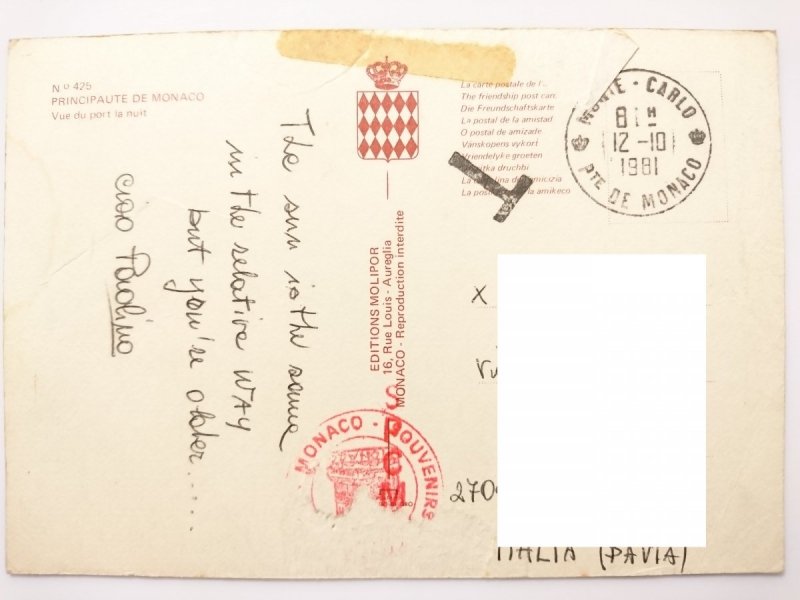 Nº 425
PRINCIPAUTE DE MONACO
Vue du port la nuit
The sun is the same
in the relative WAY
but you're older.....
ciao Paolino
EDITIONS MOLIPOR
16, Rue Louis - Aureglia
MONACO - Reproduction interdite
MONACO - SOUVENIRS
S.P.C.M
La carte postale de l'
The friendship post car
Die Freundschaftskarte
La postal de la amistad
O postal de amizade
Vänskapens vykort
Vriendelyke groeten
druchbi
La
amicizia
La
la amikeco
T
MONTE - CARLO
8 1 H
12-10
1981
PTE DE MONACO
X
270
ITALIA (PAVIA)